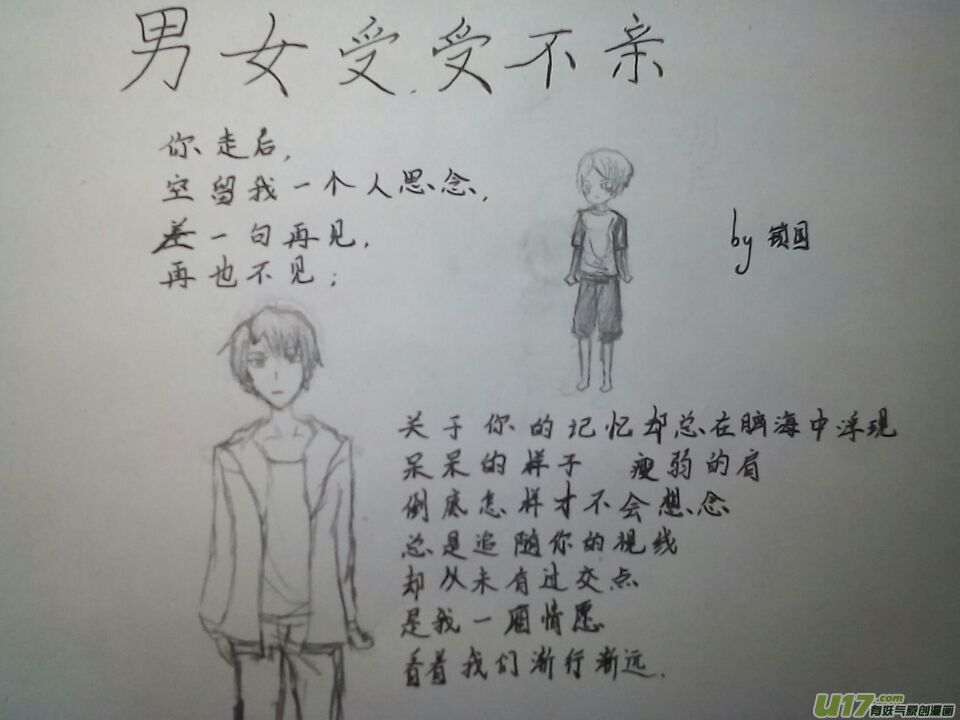 男女受受不亲
你走后,
空留我一个人思念,
差一句再见,
再也不见;
by 锁国
关于你的记忆却总在脑海中浮现
呆呆的样子 瘦弱的肩
倒底怎样才不会想念
总是追随你的视线
却从未有过交点
是我一厢情愿
看着我们渐行渐远.
U17.com
有妖气原创漫画